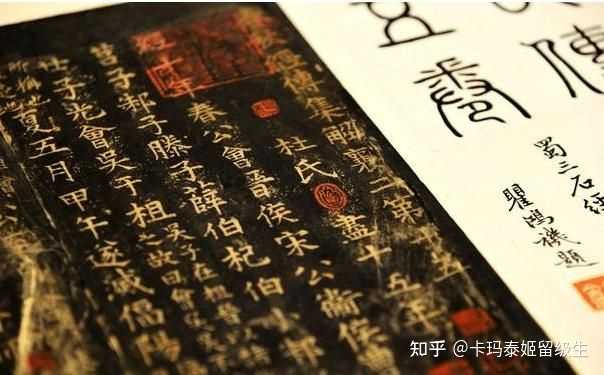 傳
五卷
蜀石經
瞿鴻禨題
經傳集解襄二第十五
杜氏 盡十五年
經十年春公會晉侯宋公衛侯
莒子邾子滕子薛伯杞伯
世子光會吳于柤
吳子在柤晉
之故曰會吳
夏五月甲午遂滅偪陽
知乎 @卡玛泰姬留级生